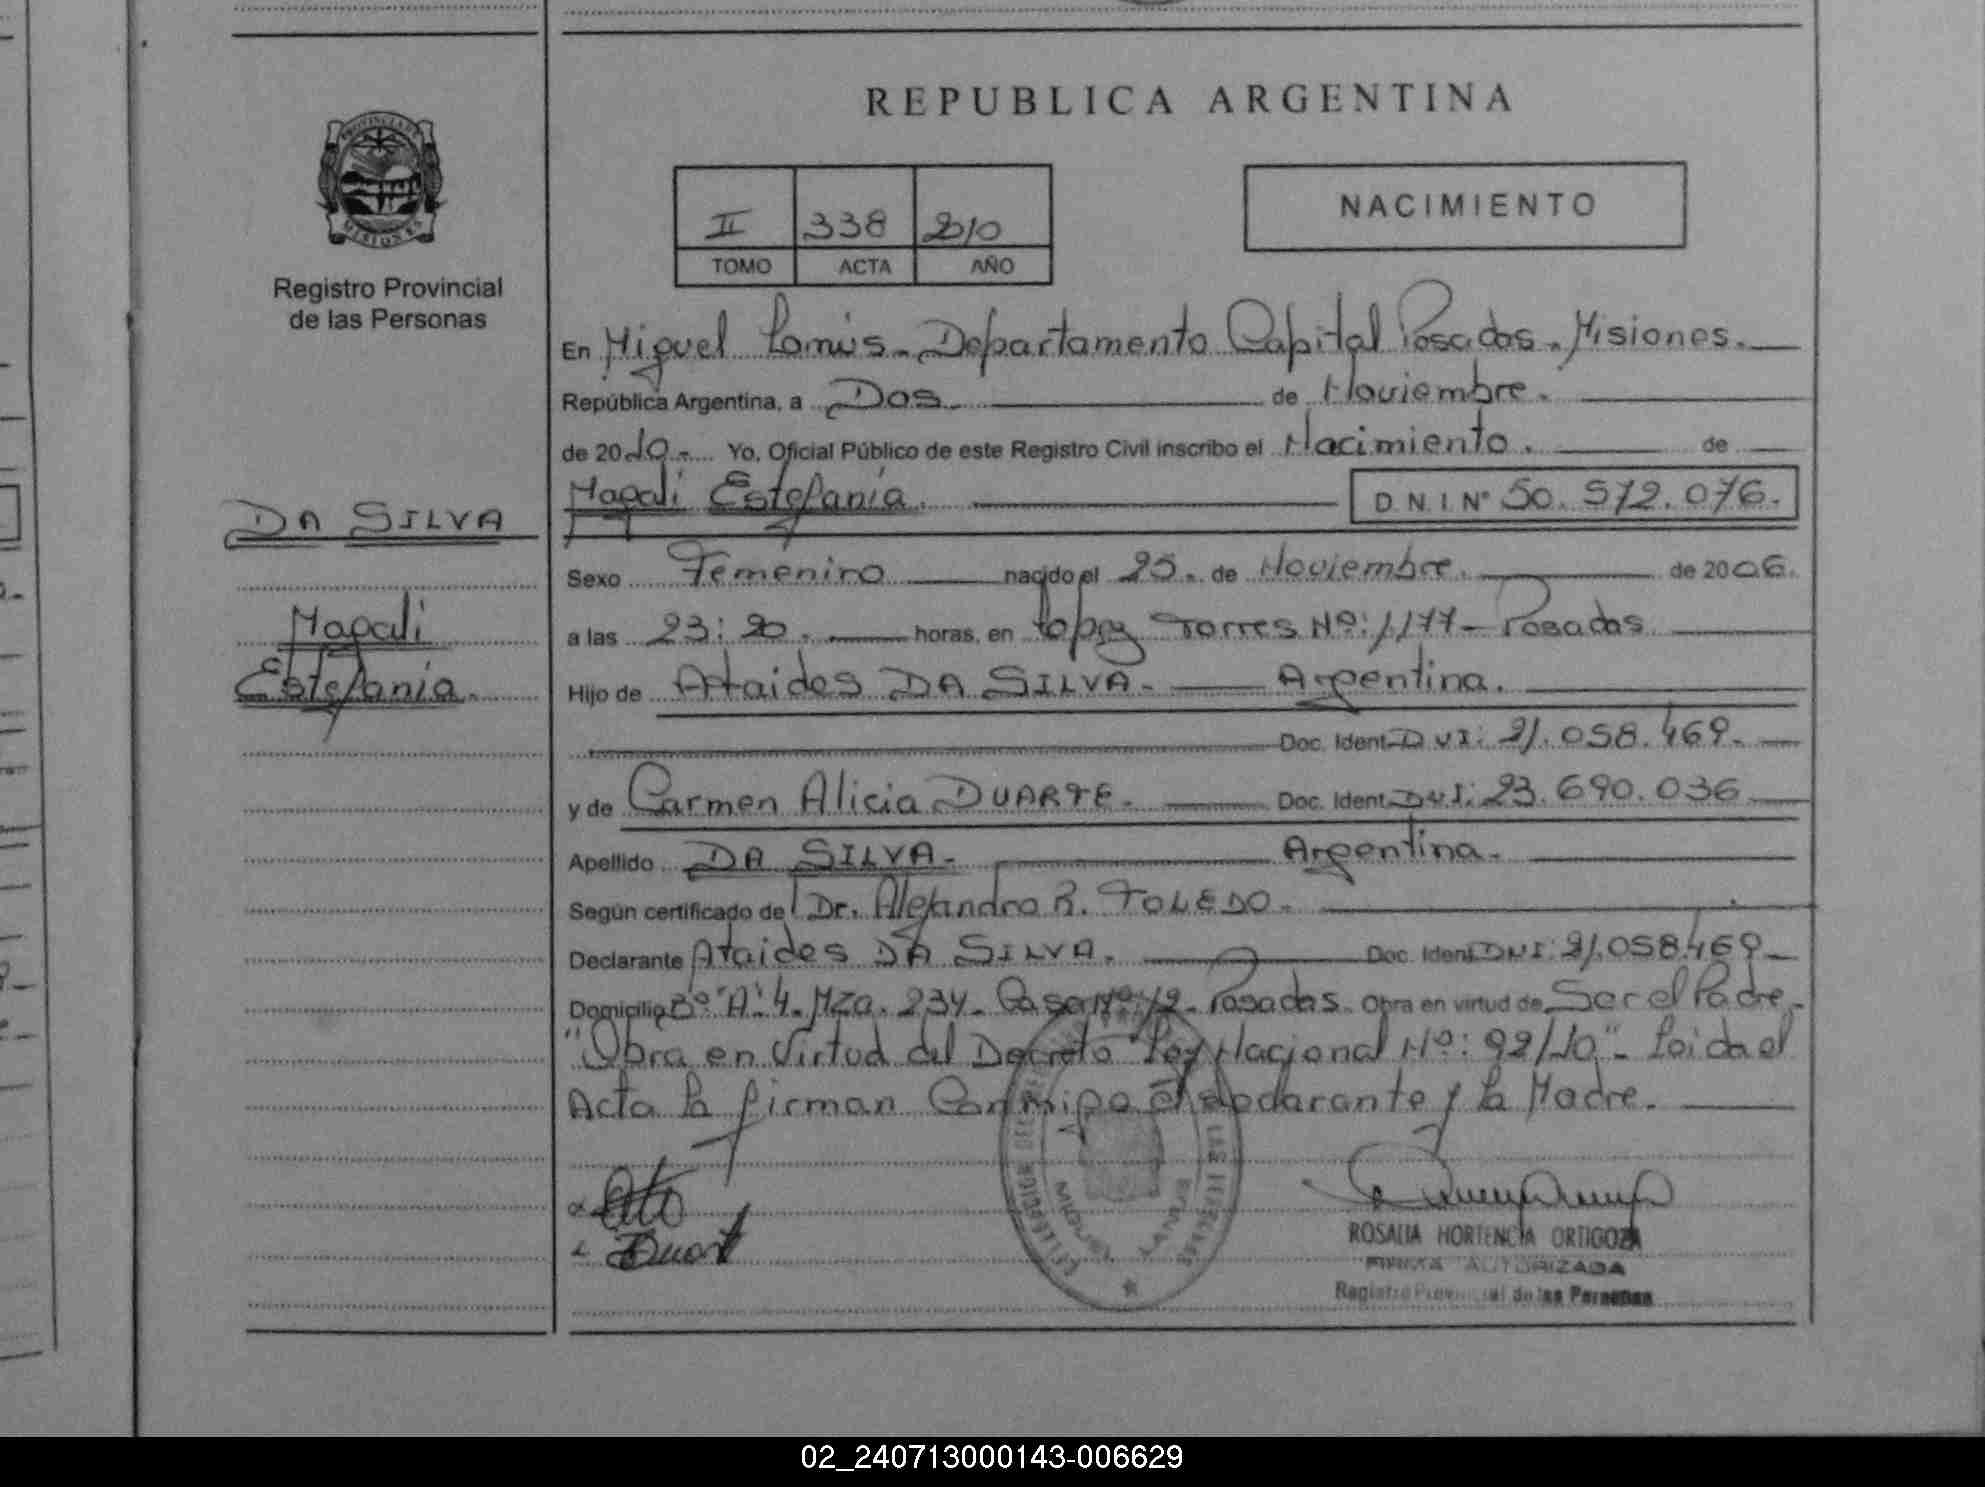 REPUBLICA ARGENTINA
PROVINCIA DE MISIONES
Registro Provincial
de las Personas
II 338 2010
TOMO ACTA AÑO
NACIMIENTO
En Miguel Lanús. Departamento Capital Posadas. Misiones.
República Argentina, a Dos. de Noviembre.
de 2010. Yo, Oficial Público de este Registro Civil inscribo el Nacimiento. de
Magali Estefanía. D.N.I. Nº 50.572.076.
DA SILVA
Magali
Estefanía.
Sexo Femenino nacido el 25. de Noviembre. de 2006.
a las 23:20. horas, en López Torres Nº: 1177 - Posadas
Hijo de Ataides DA SILVA. Argentina.
Doc. Ident. D.N.I: 21.058.469.
y de Carmen Alicia DUARTE. Doc. Ident. D.N.I: 23.690.036
Apellido DA SILVA. Argentina.
Según certificado de Dr. Alejandro R. TOLEDO.
Declarante Ataides DA SILVA. Doc. Ident. DNI: 21.058.469
Domicilio Bº "A" 4. Mza. 234. Casa Nº: 12. Posadas. Obra en virtud de Ser el Padre.
"Obra en Virtud del Decreto Ley Nacional Nº: 92/10". Leida el
Acta la firman Conmigo el declarante y la Madre.
Duart
MIGUEL LANUS
ROSALIA HORTENCIA ORTIGOZA
FIRMA AUTORIZADA
Registro Provincial de las Personas
02_240713000143-006629